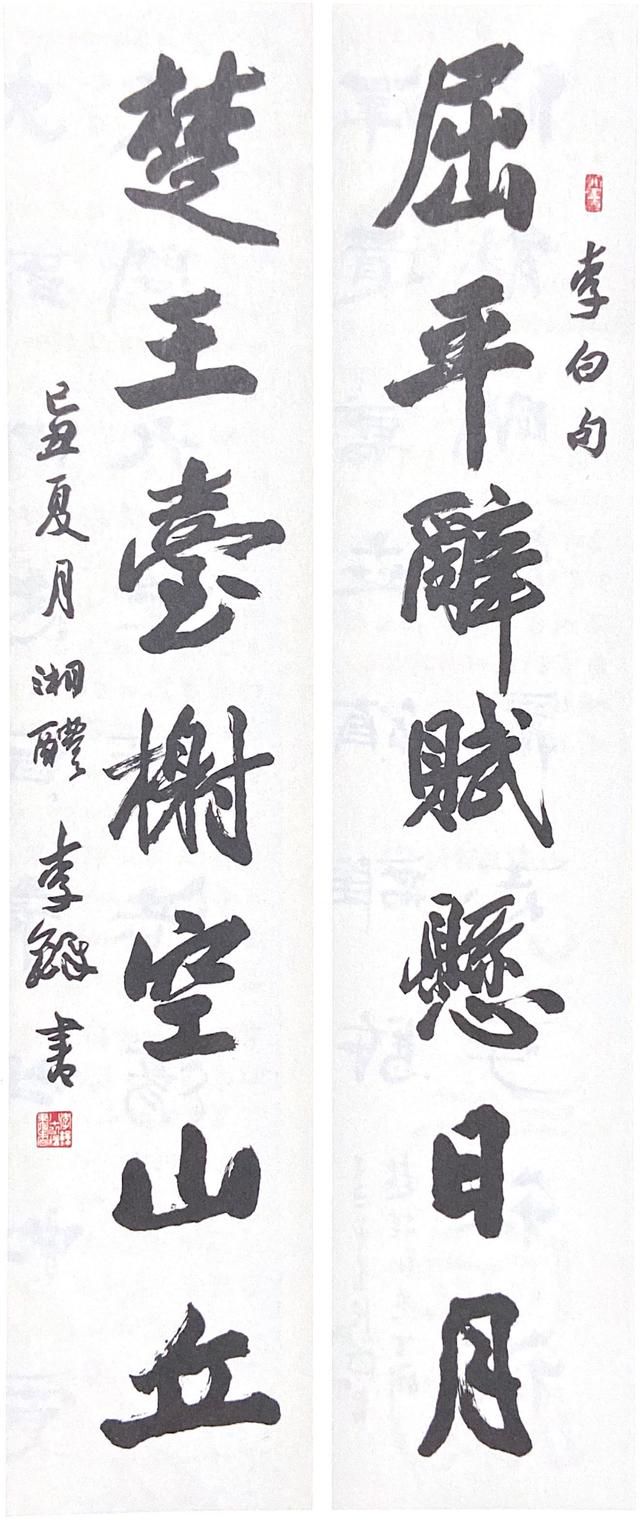 李白句
屈平辭賦懸日月
楚王臺榭空山丘
己丑夏月湘醴李
書